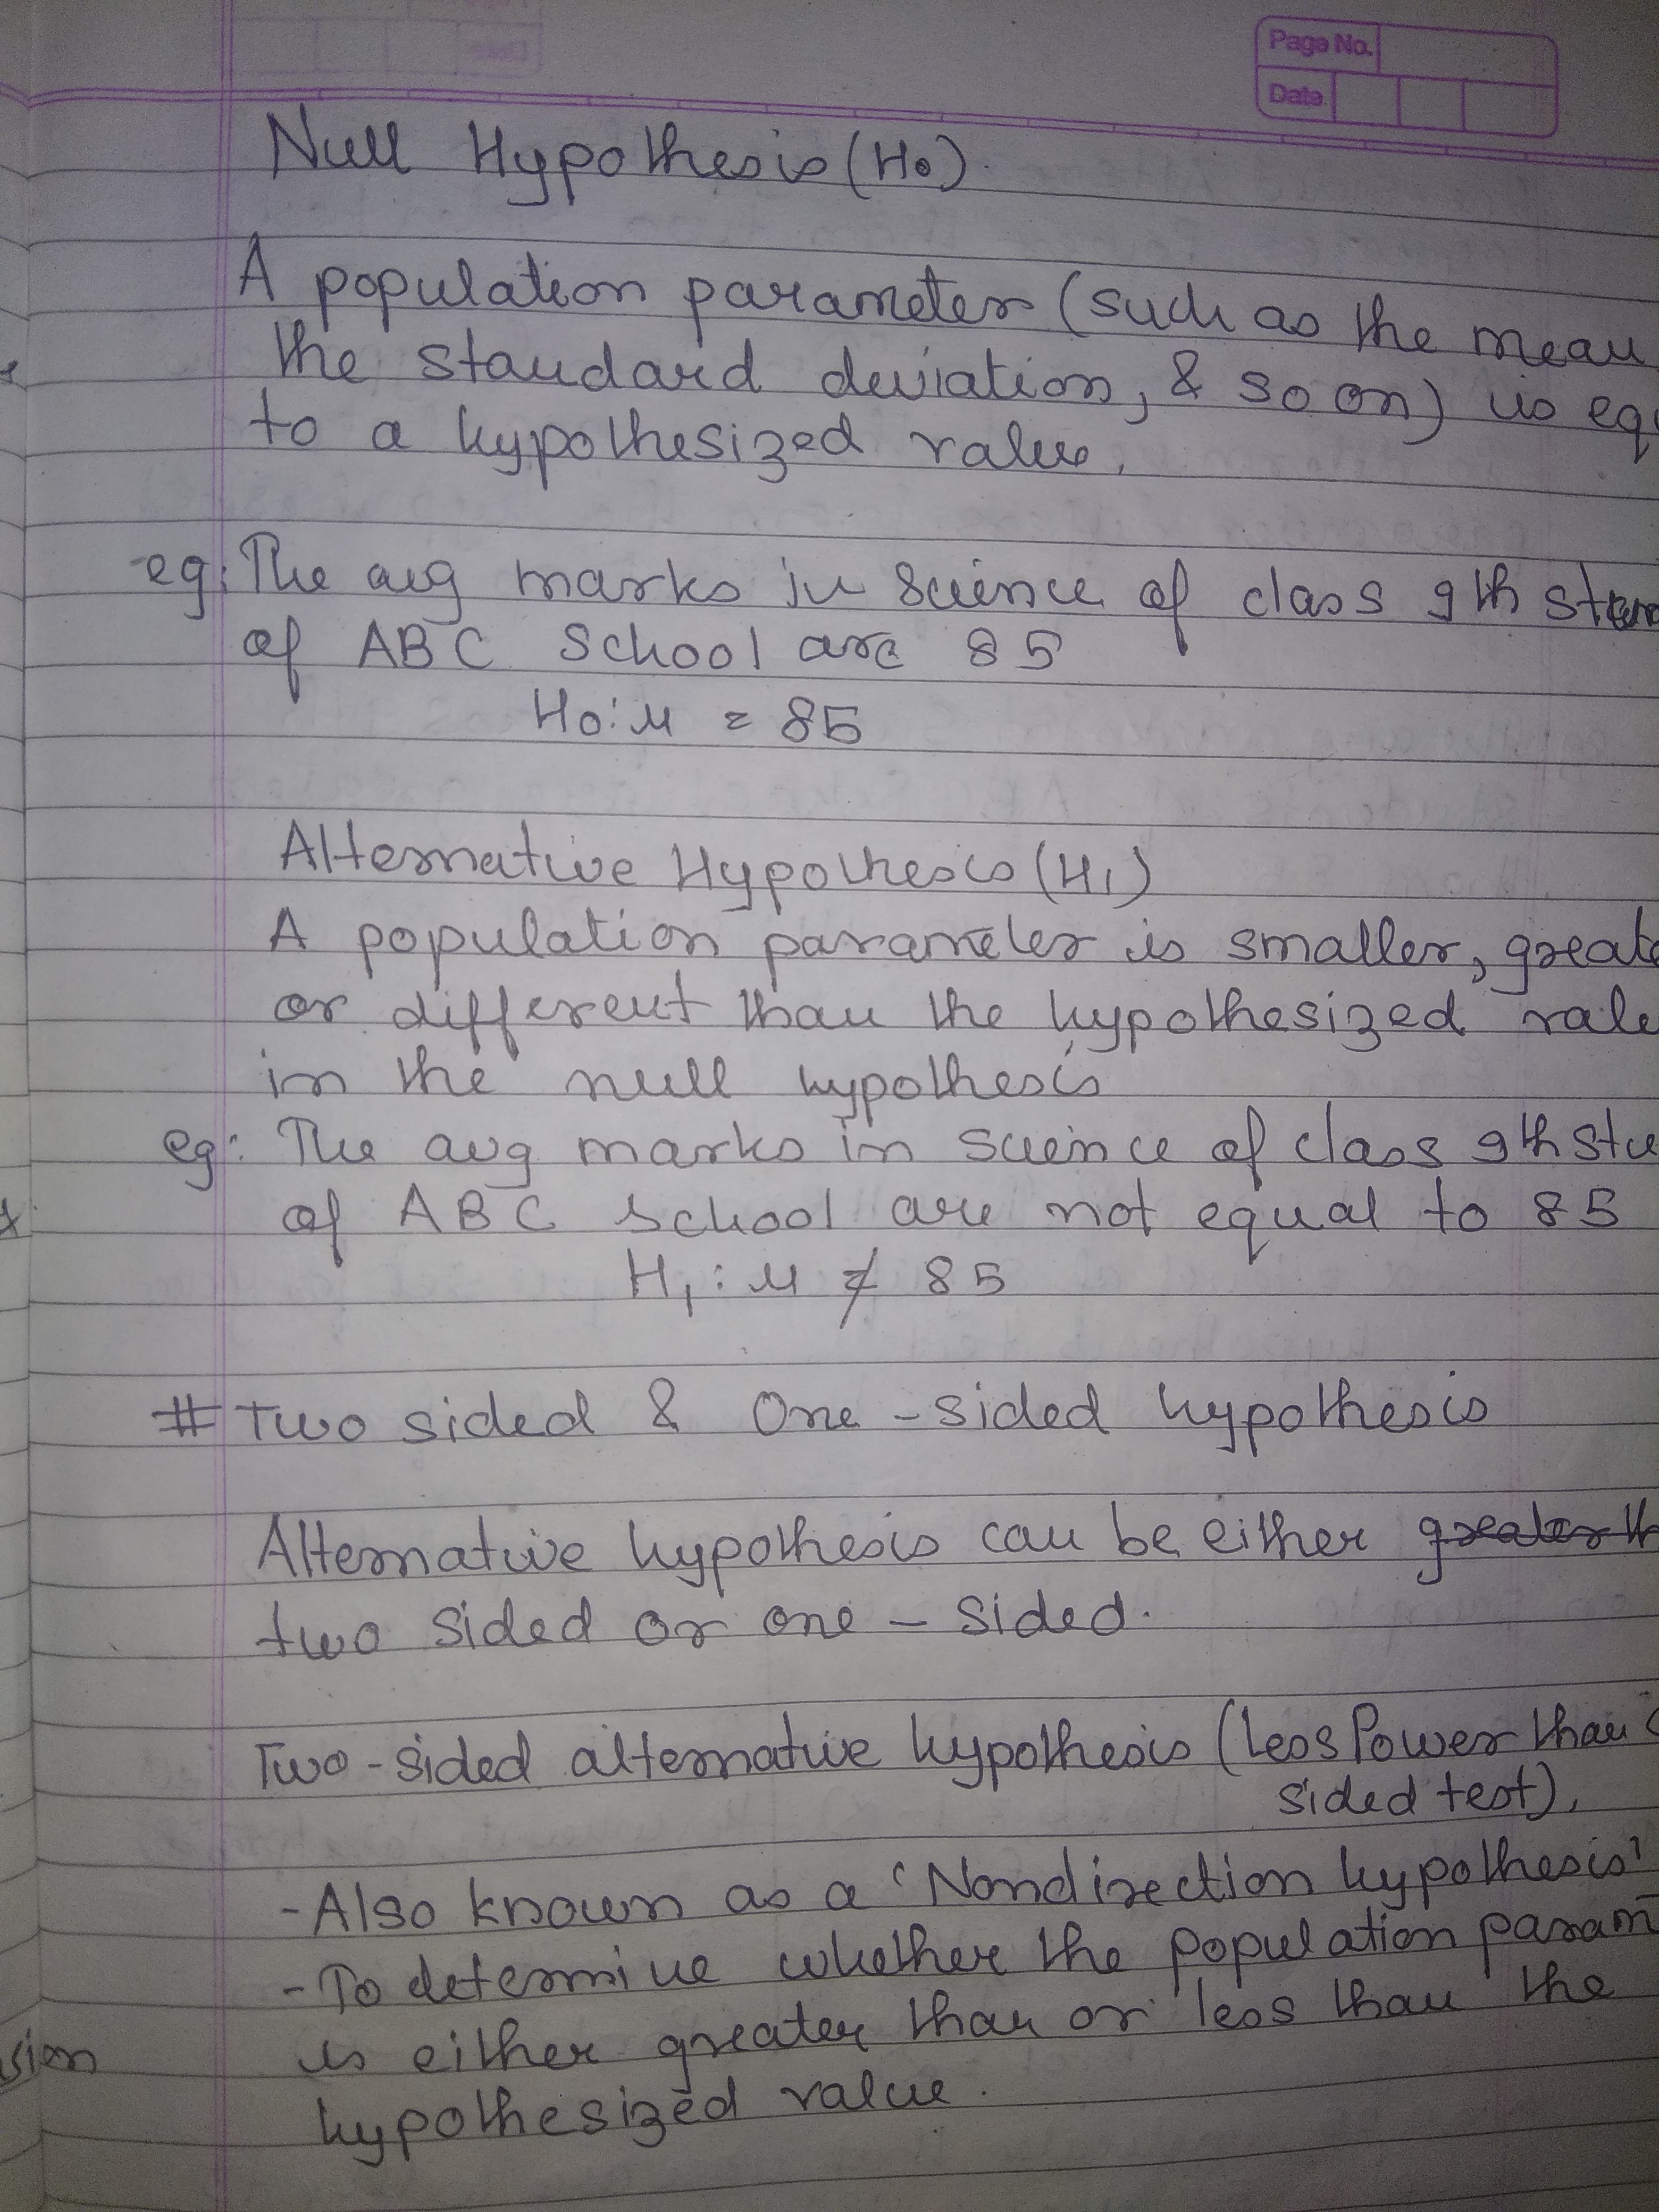 Page No.
Date
Null Hypothesis (H0).
A population parameter (such as the mean
the standard deviation, & so on) is equ
to a hypothesized value.
eg: The avg marks in Science of class 9th
of ABC School are 85
H0: μ = 85
Alternative Hypothesis (H1)
A population parameter is smaller, greate
or different than the hypothesized valu
in the null hypothesis
eg: The avg marks in science of class 9th stu
of ABC school are not equal to 85
H1: μ ≠ 85
# Two sided & One-sided hypothesis
Alternative hypothesis can be either greater th
two sided or one-sided.
Two-sided alternative hypothesis (Less Power than
sided test).
- Also known as a 'Nondirection hypothesis'
- To determine whether the population param
is either greater than or less than the
hypothesized value.
sion